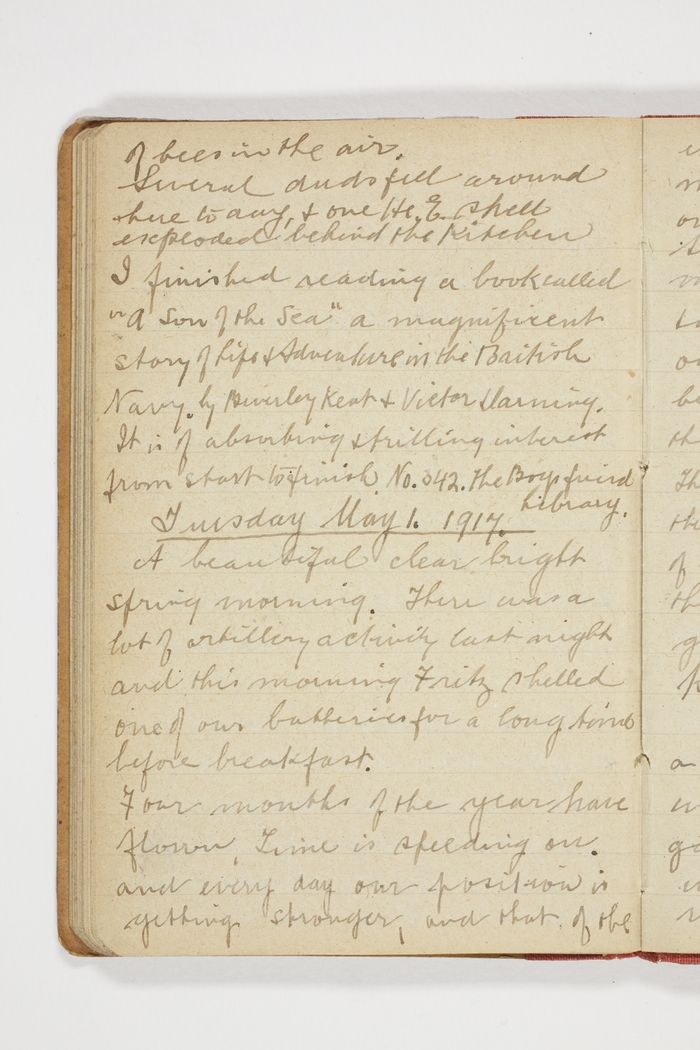 of bees in the air.
Several duds fell around
here to day, & one H.E. shell
exploded behind the Kitchen
I finished reading a book called
"A Son of the Sea" a magnificent
story of Life & Adventure in the British
Navy. by Beverley Kent & Victor
It is of absorbing & trilling interest
from start to finish No. 342. The Boys friend
Library.
Tuesday May 1. 1917.
A beautiful clear bright
spring morning. There was a
lot of artillery activity last night
and this morning Fritz shelled
one of our batteries for a long time
before breakfast.
Four months of the year have
flown, Time is speeding on.
and every day our position is
getting stronger, and that of the